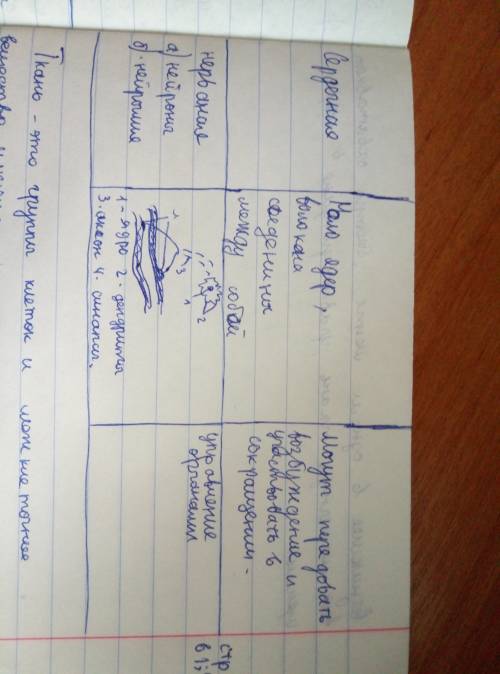 Сердечная
Мало ядер,
волокна
соединины
между собой
могут передовать
возбуждение и
участвовать в
сокращении.
нервание
а) нейроны
б) нейроглия
1
2
3
1- ядро 2- дендриты
3. аксон 4. синапил.
управление
органами
стр
в 1;
Ткань - это группы клеток и межклеточное
вещество